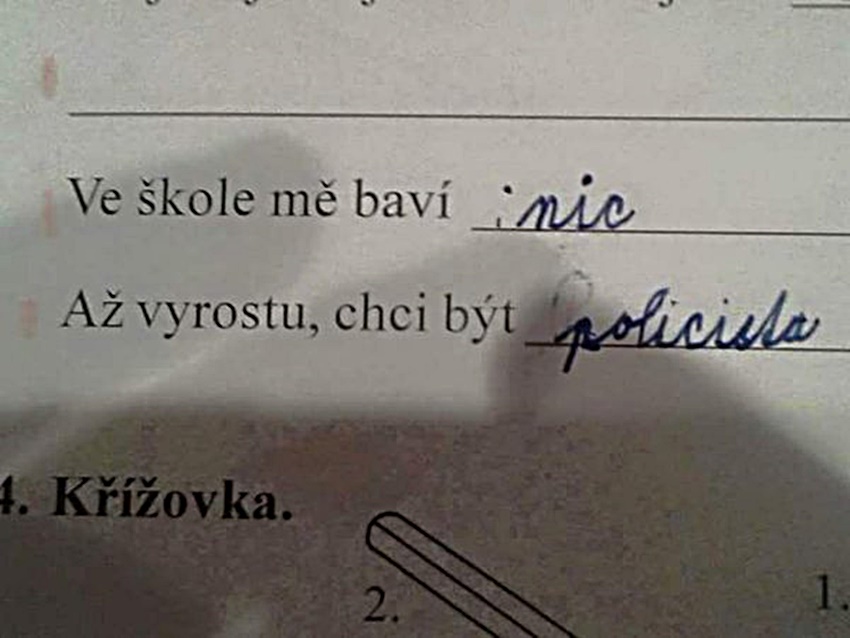 Ve škole mě baví nic
Až vyrostu, chci být policista
4. Křížovka.
2.
1.